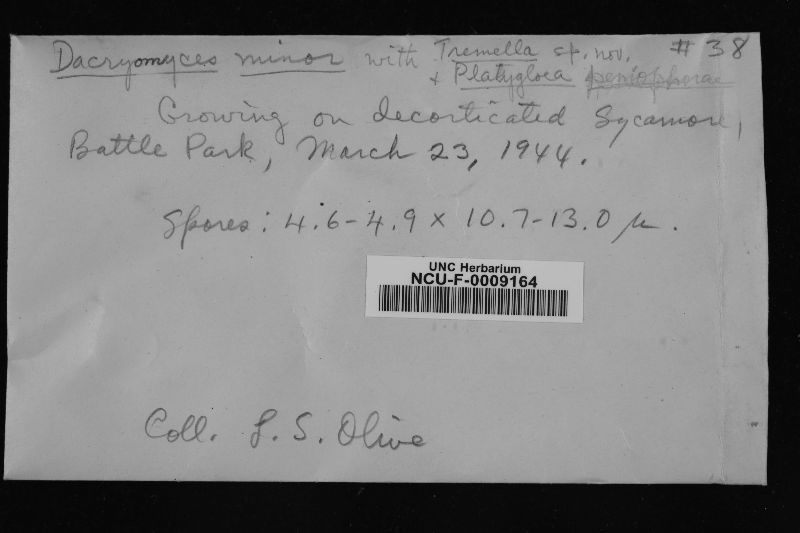 Dacryomyces minor with Tremella sp. nov. #38
+ Platygloea peniophorae
Growing on decorticated Sycamore,
Battle Park, March 23, 1944.
Spores: 4.6-4.9 x 10.7-13.0 µ.
UNC Herbarium
NCU-F-0009164
Coll. L. S. Olive